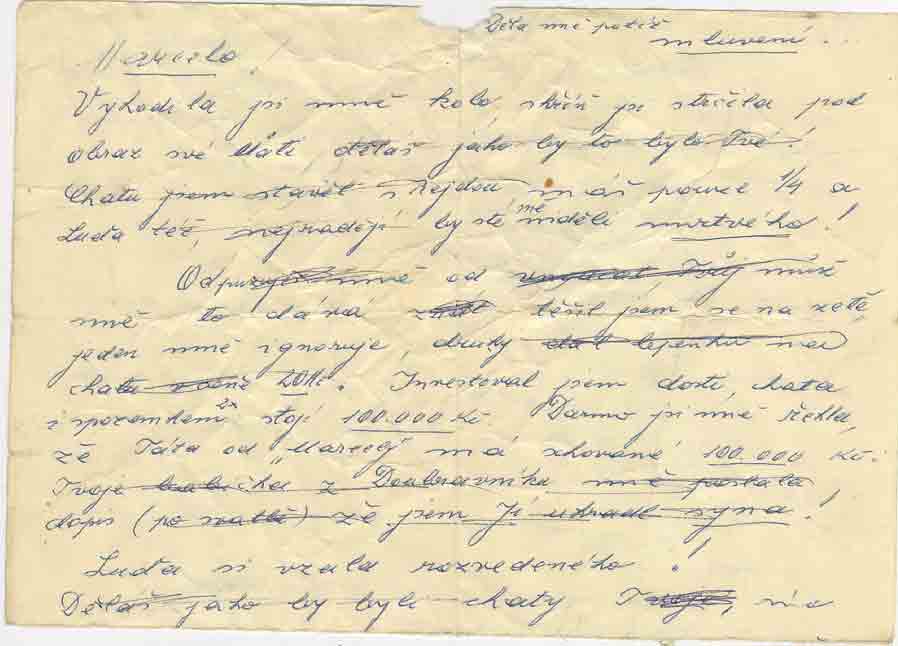 Dělá mě potíž
mluvení...
Marcelo!
Vyhodila jsi mně kolo, skříň jsi strčila pod
obraz své Táti, děláš jako by to bylo Tvé!
Chatu jsem stavěl s Rejdou máš pouze 1/4 a
Luďa též, nejraději by stě mě viděli mrtvého!
mně od Tvůj muž
mně to dává těšil jsem se na zetě,
jeden mně ignoruje, druhý dal lepenku na
chatu v ceně 20 Kč. Investoval jsem dosti, chata
i s pozemkem stojí 100.000 Kč. Darmo jsi mně řekla,
že Táta od „Marcely má schované 100.000 Kč.
Tvoje babička z Doubravníka mně poslala
dopis (po svatbě) že jsem Jí ukradl syna!
Luďa si vzala rozvedeného!
Děláš jako by byli chaty Tvoje,